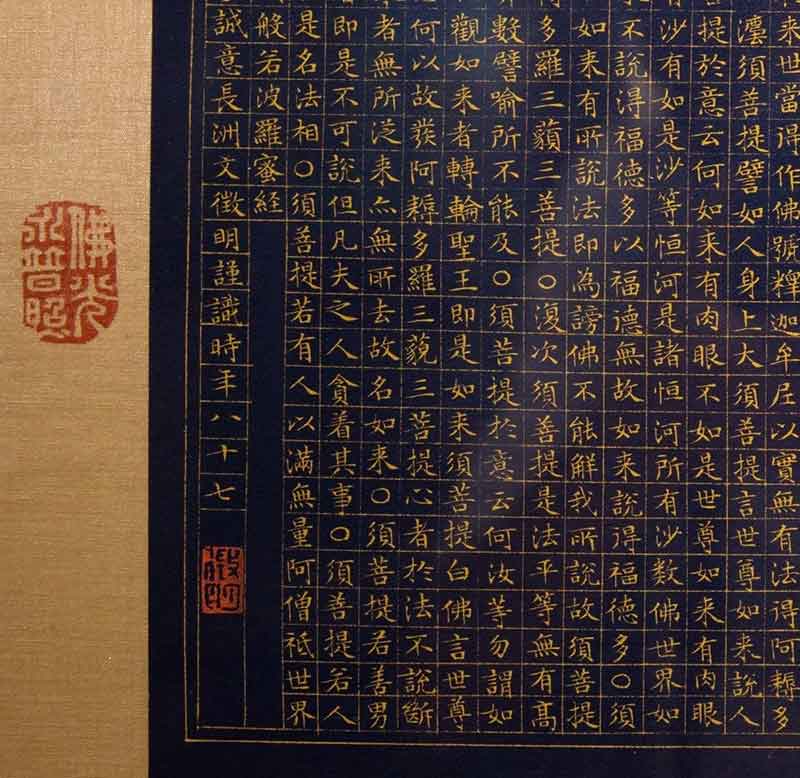 来世當得作佛號釋迦牟尼以實無有法得阿耨多
須菩提譬如人身上大須菩提言世尊如来說人
提於意云何如来有肉眼不如是世尊如来有肉眼
沙有如是沙等恒河是諸恒河所有沙数佛世界如
不說得福德多以福德無故如来說得福德多○須
如来有所說法即為謗佛不能解我所說故須菩提
多羅三藐三菩提○復次須菩提是法平等無有高
數譬喻所不能及○須菩提於意云何汝等勿謂如
觀如来者轉輪聖王即是如来須菩提白佛言世尊
何以故發阿耨多羅三藐三菩提心者於法不說斷
者無所泛来亦無所去故名如来○須菩提若善男
即是不可說但凡夫之人貪着其事○須菩提若人
是名法相○須菩提若有人以滿無量阿僧祇世界
般若波羅蜜經
誠意長洲文徵明謹識時年八十七
徵明
佛光
永普照